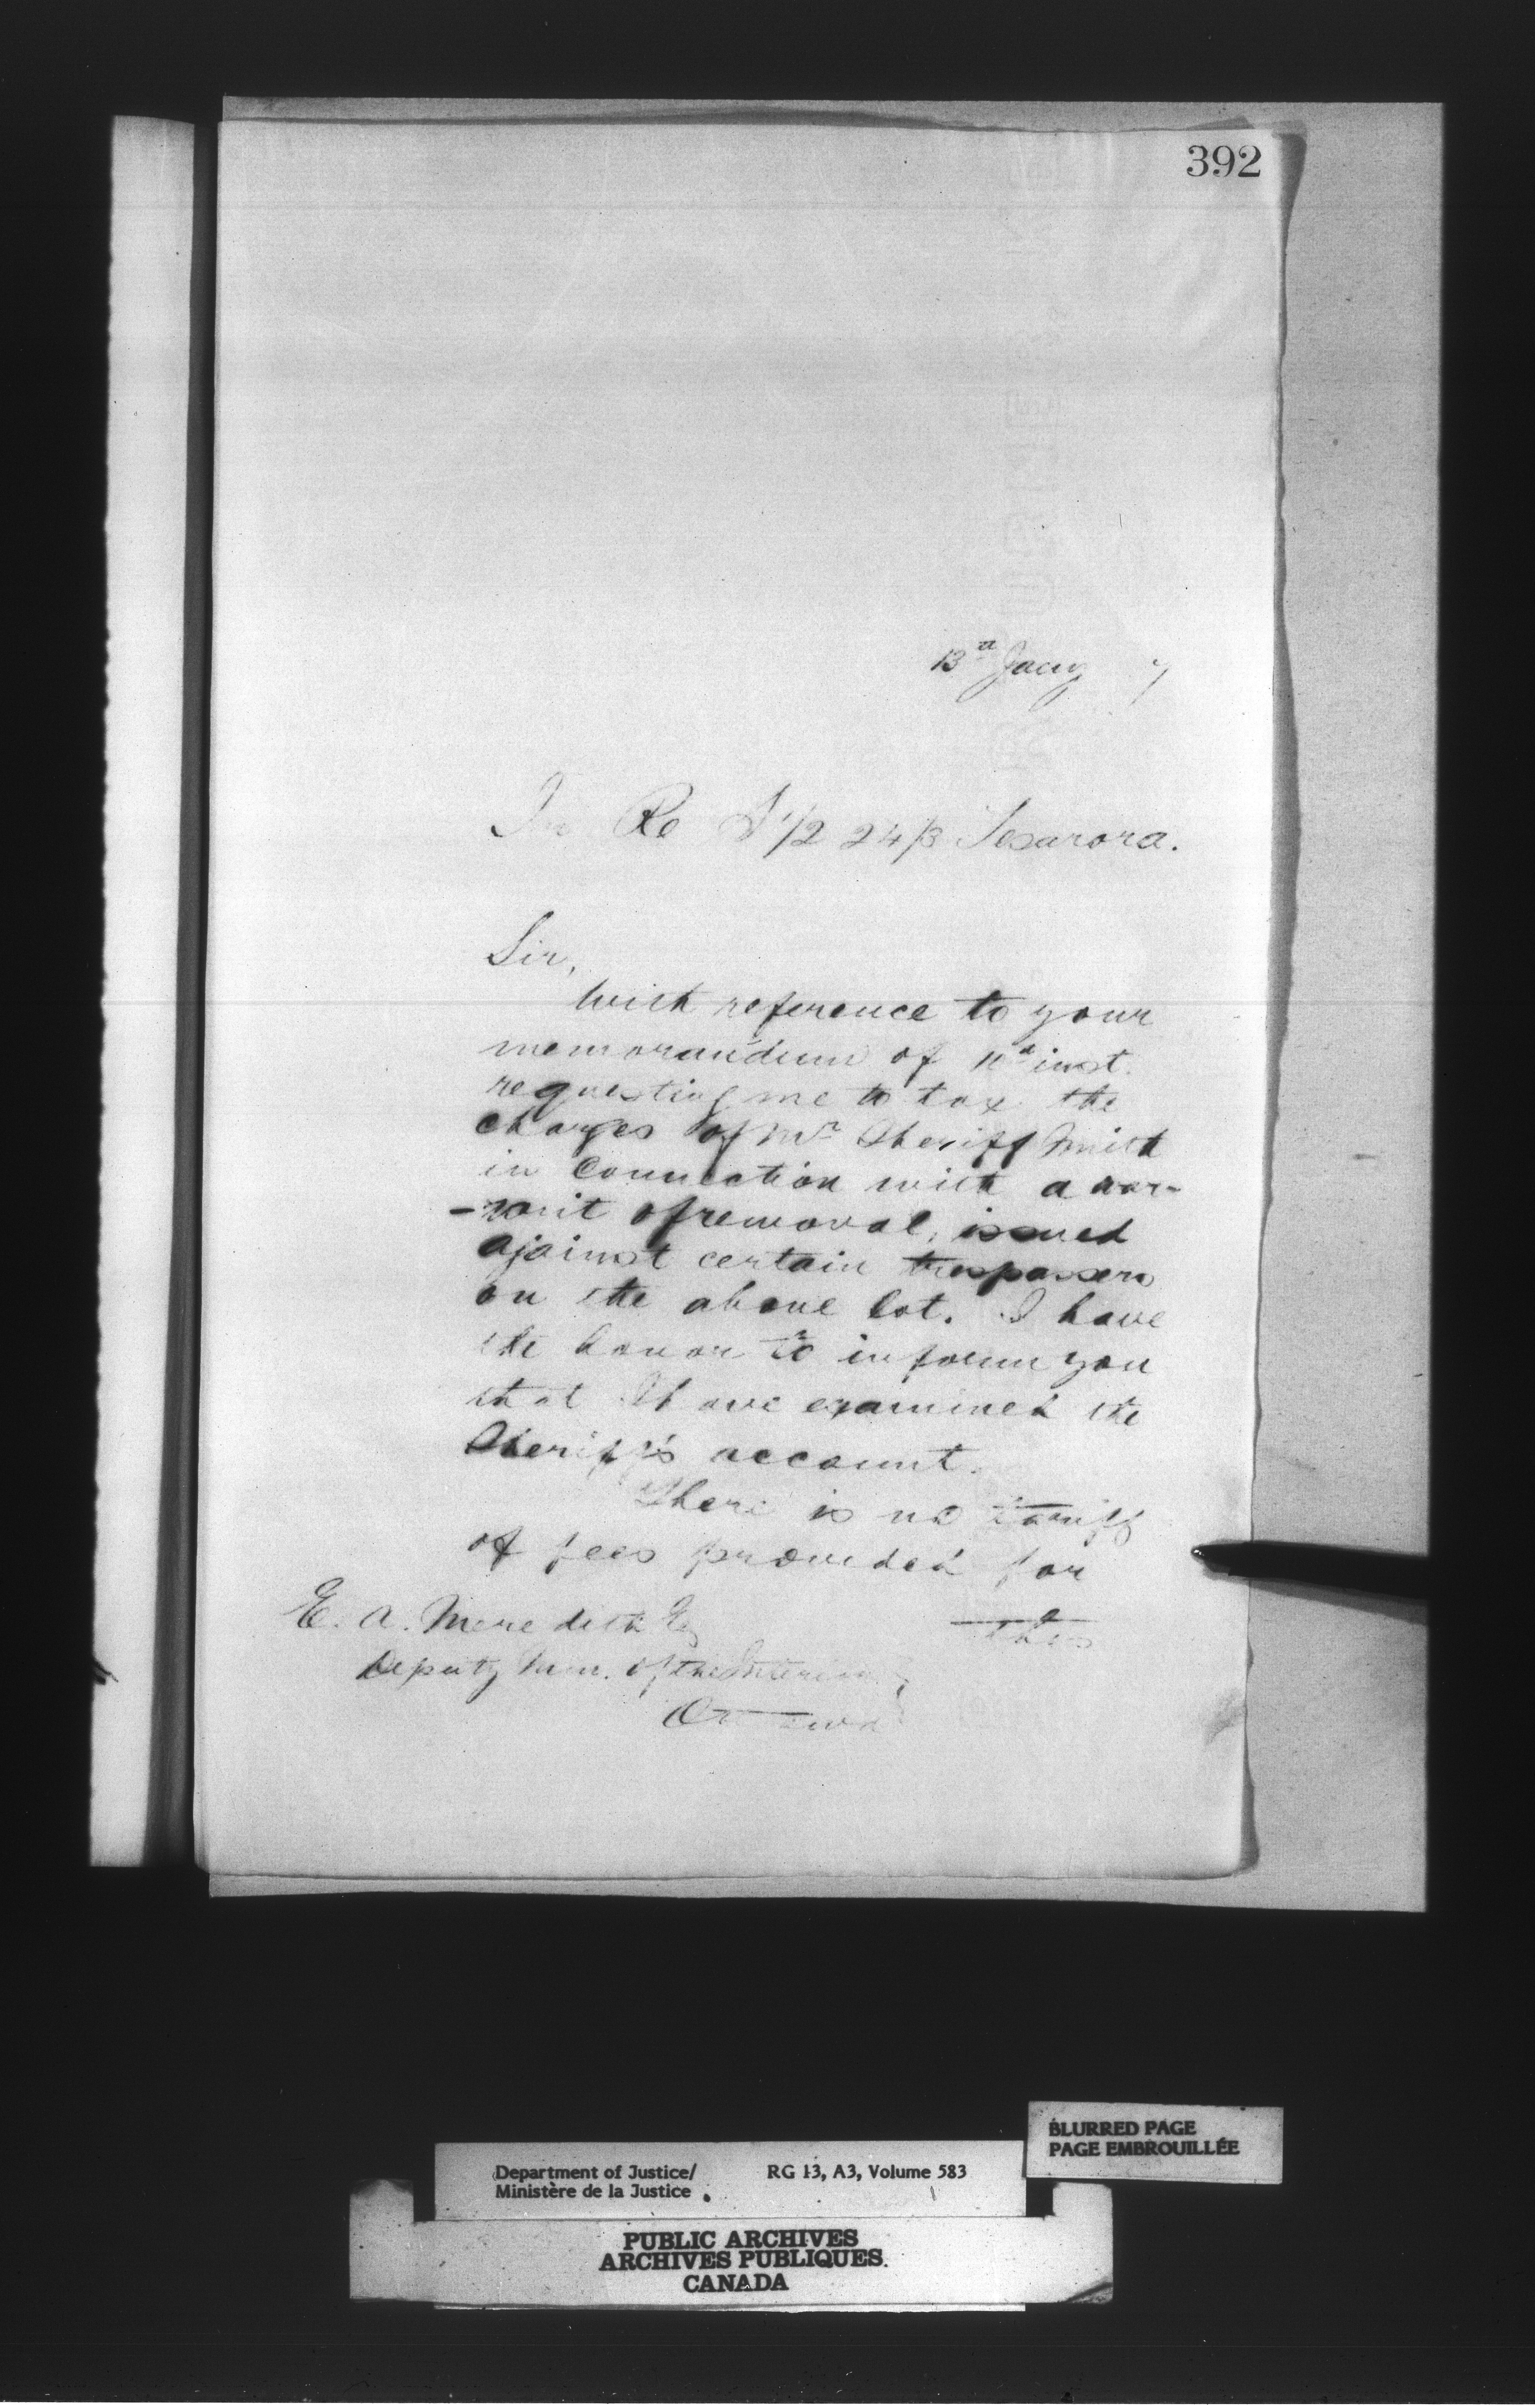 392
13th Jany 7
In Re S 1/2 24/3 Tescarora.
Sir,
With reference to your
memorandum of 11th inst.
requesting me to tax the
charges of Mr Sheriff Smith
in connection with a war-
-rant of removal, issued
against certain trespassers
on the above lot. I have
the honor to inform you
that I have examined the
Sheriff's account.
There is no tariff
of fees provided for
this
E. A. Meredith Esq
Deputy Min. of the Interior
Ottawa
BLURRED PAGE
PAGE EMBROUILLÉE
Department of Justice/ RG 13, A3, Volume 583
Ministère de la Justice
PUBLIC ARCHIVES
ARCHIVES PUBLIQUES
CANADA